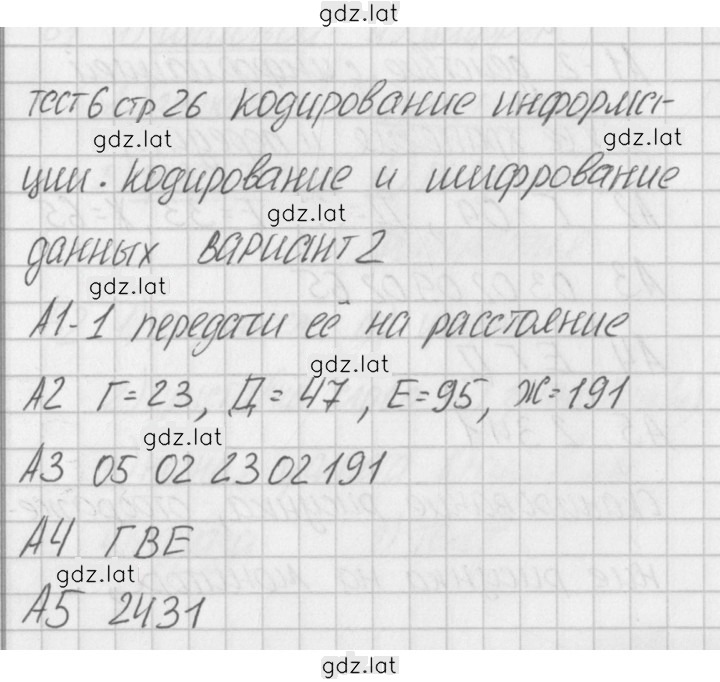 gdz.lat
тест 6 стр 26 кодирование информа-
gdz.lat
gdz.lat
ции. кодирование и шифрование
gdz.lat
данных вариант 2
gdz.lat
А1-1 передачи её на расстояние
gdz.lat
А2 Г=23, Д=47, Е=95, Ж=191
gdz.lat
А3 05 02 23 02 191
А4 ГВЕ
gdz.lat
А5 2431
gdz.lat